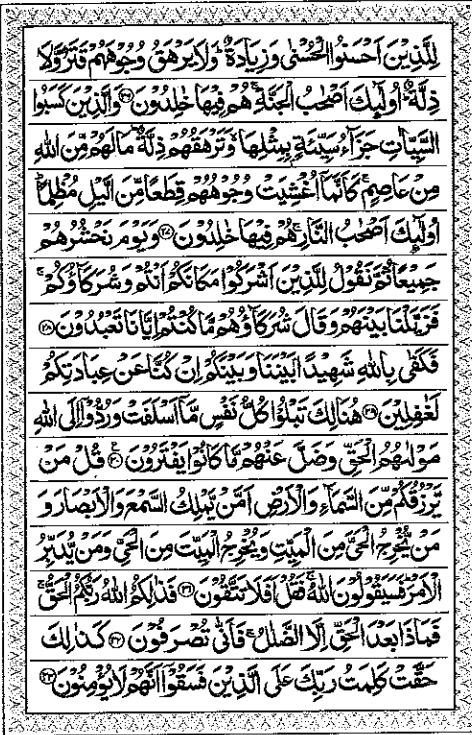 لِلَّذِيۡنَ اَحۡسَنُوا الۡحُسۡنٰى وَزِيَادَةٌ ؕ وَلَا يَرۡهَقُ وُجُوۡهَهُمۡ قَتَرٌ وَّلَا
ذِلَّةٌ ؕ اُولٰٓئِكَ اَصۡحٰبُ الۡجَنَّةِ ۚ هُمۡ فِيۡهَا خٰلِدُوۡنَ ﴿۲۶﴾ وَالَّذِيۡنَ كَسَبُوا
السَّيِّاٰتِ جَزَآءُ سَيِّئَةٍۢ بِمِثۡلِهَا ۙ وَتَرۡهَقُهُمۡ ذِلَّةٌ ؕ مَا لَهُمۡ مِّنَ اللّٰهِ
مِنۡ عَاصِمٍ ۚ كَاَنَّمَاۤ اُغۡشِيَتۡ وُجُوۡهُهُمۡ قِطَعًا مِّنَ الَّيۡلِ مُظۡلِمًا ؕ
اُولٰٓئِكَ اَصۡحٰبُ النَّارِ ۚ هُمۡ فِيۡهَا خٰلِدُوۡنَ ﴿۲۷﴾ وَيَوۡمَ نَحۡشُرُهُمۡ
جَمِيۡعًا ثُمَّ نَقُوۡلُ لِلَّذِيۡنَ اَشۡرَكُوۡا مَكَانَكُمۡ اَنۡتُمۡ وَشُرَكَآؤُكُمۡ ۚ
فَزَيَّلۡنَا بَيۡنَهُمۡ وَقَالَ شُرَكَآؤُهُمۡ مَّا كُنۡتُمۡ اِيَّانَا تَعۡبُدُوۡنَ ﴿۲۸﴾
فَكَفٰى بِاللّٰهِ شَهِيۡدًۢا بَيۡنَنَا وَبَيۡنَكُمۡ اِنۡ كُنَّا عَنۡ عِبَادَتِكُمۡ
لَغٰفِلِيۡنَ ﴿۲۹﴾ هُنَالِكَ تَبۡلُوۡا كُلُّ نَفۡسٍ مَّاۤ اَسۡلَفَتۡ وَرُدُّوۡۤا اِلَى اللّٰهِ
مَوۡلٰٮهُمُ الۡحَقِّ وَضَلَّ عَنۡهُمۡ مَّا كَانُوۡا يَفۡتَرُوۡنَ ﴿۳۰﴾ قُلۡ مَنۡ
يَّرۡزُقُكُمۡ مِّنَ السَّمَآءِ وَالۡاَرۡضِ اَمَّنۡ يَّمۡلِكُ السَّمۡعَ وَالۡاَبۡصَارَ وَ
مَنۡ يُّخۡرِجُ الۡحَىَّ مِنَ الۡمَيِّتِ وَيُخۡرِجُ الۡمَيِّتَ مِنَ الۡحَىِّ وَمَنۡ يُّدَبِّرُ
الۡاَمۡرَ ؕ فَسَيَقُوۡلُوۡنَ اللّٰهُ ۚ فَقُلۡ اَفَلَا تَتَّقُوۡنَ ﴿۳۱﴾ فَذٰلِكُمُ اللّٰهُ رَبُّكُمُ الۡحَقُّ ۚ
فَمَاذَا بَعۡدَ الۡحَقِّ اِلَّا الضَّلٰلُ ۚ فَاَنّٰى تُصۡرَفُوۡنَ ﴿۳۲﴾ كَذٰلِكَ
حَقَّتۡ كَلِمَتُ رَبِّكَ عَلَى الَّذِيۡنَ فَسَقُوۡۤا اَنَّهُمۡ لَا يُؤۡمِنُوۡنَ ﴿۳۳﴾